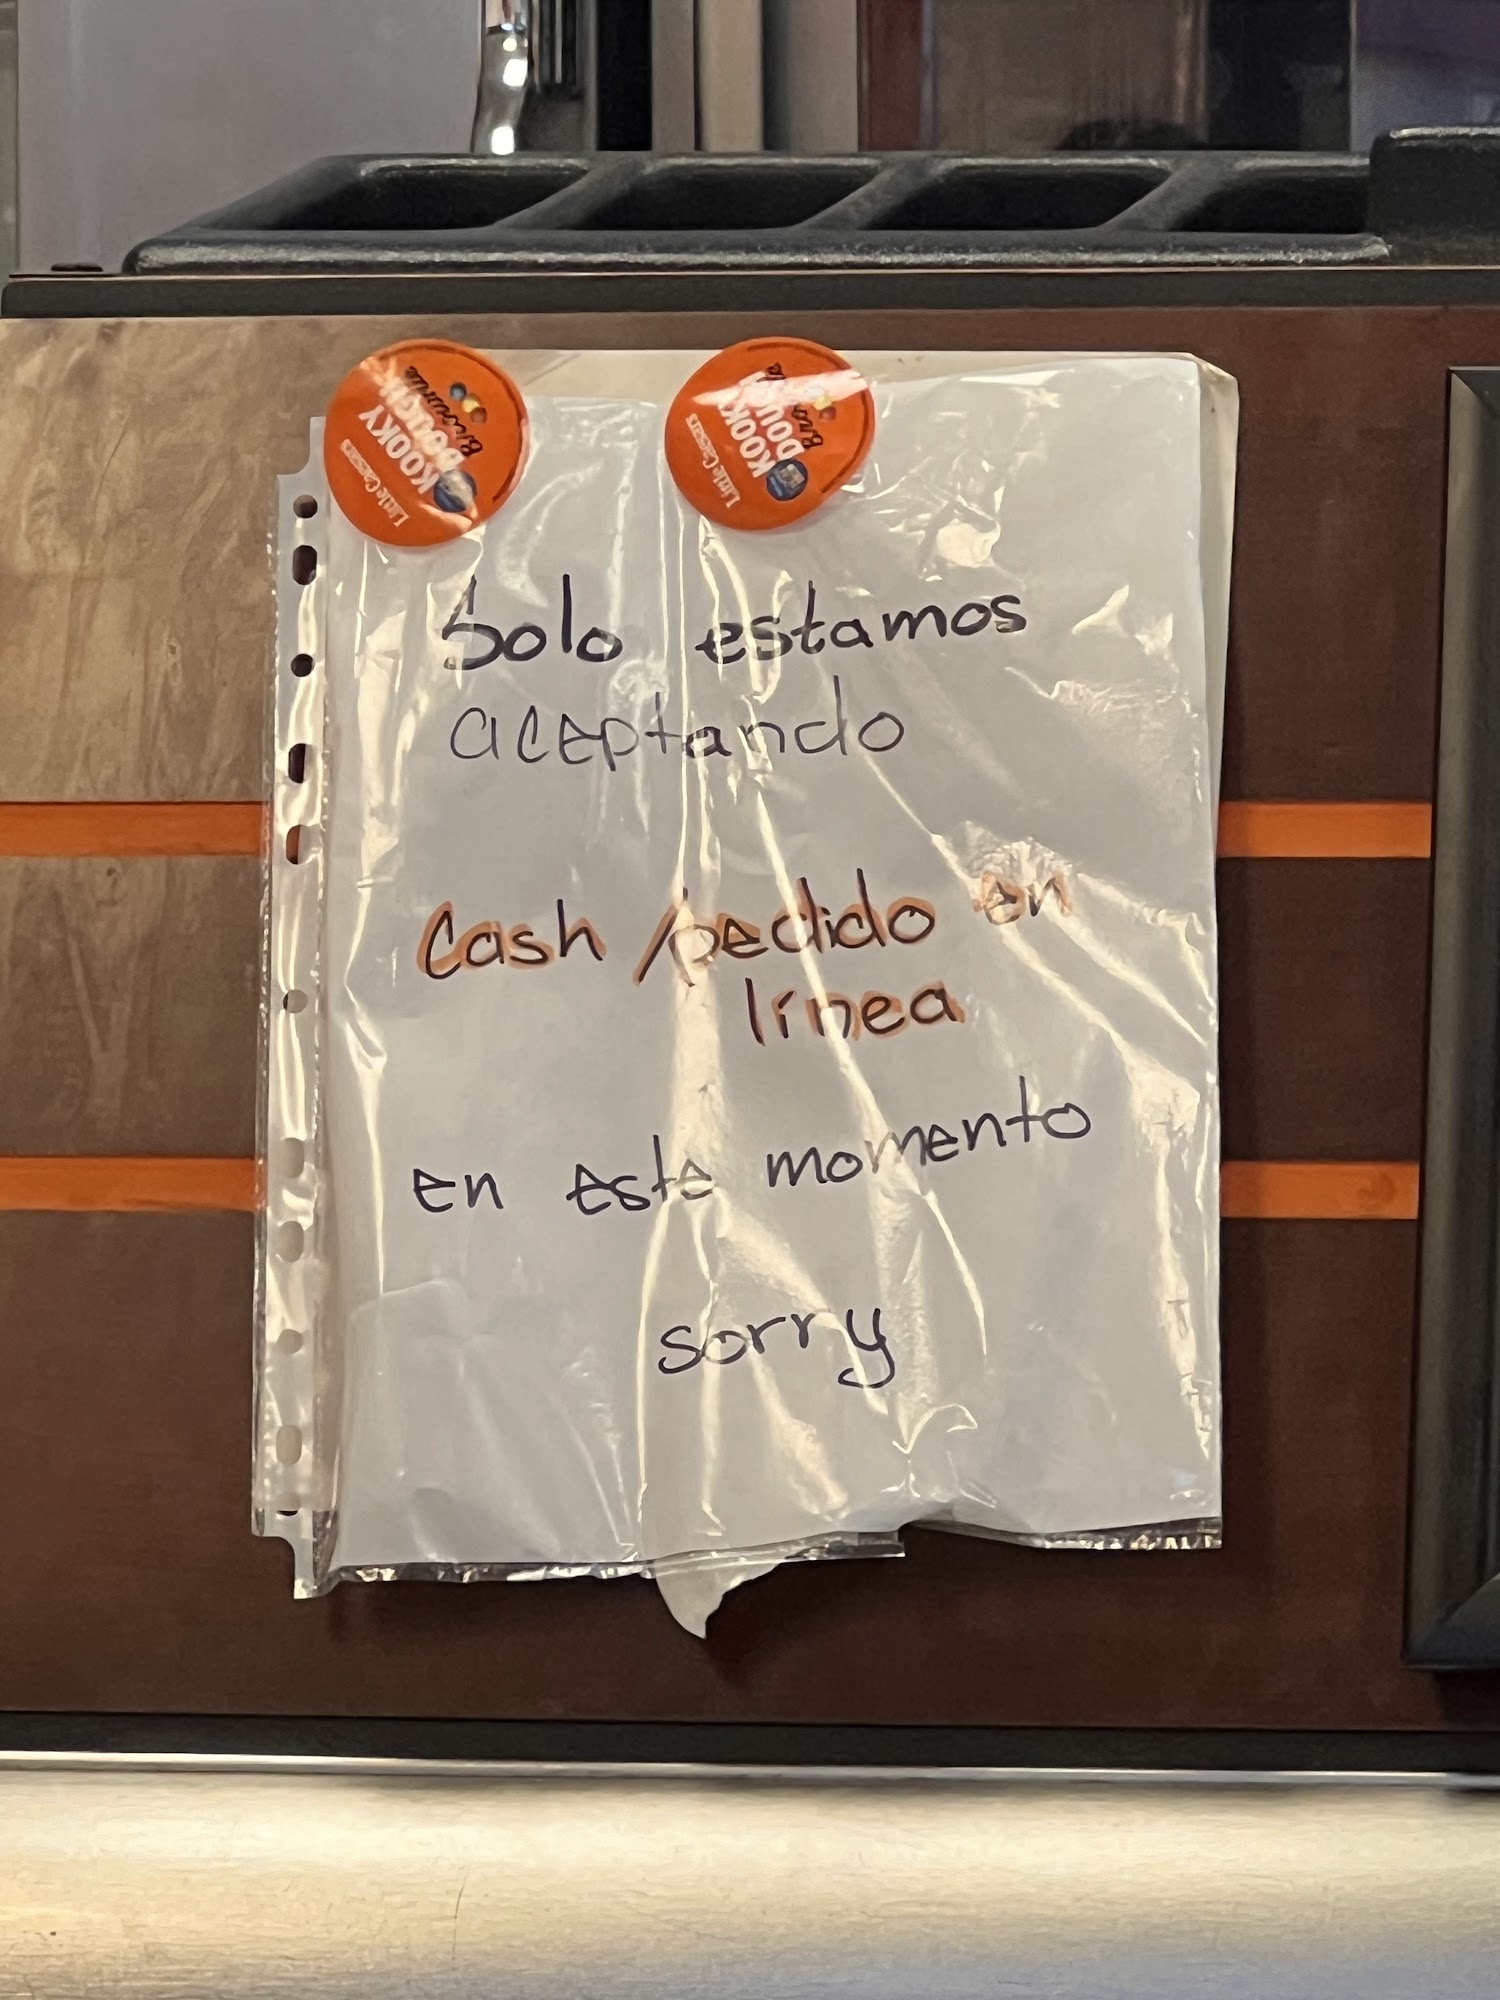 Little Caesars
KOOKY
DOUGH
Brownie
Little Caesars
KOOKY
DOUGH
Solo estamos
aceptando
Cash / pedido en
línea
en este momento
sorry